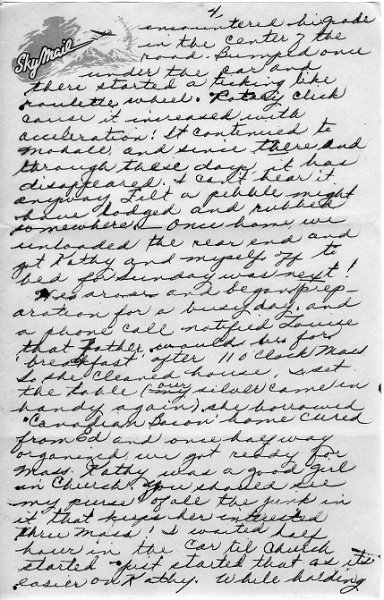 4
Sky Mail
encountered hi grade
in the center of the
road. Bumped once
under the car and
there started a ticking like
roulette wheel. Rotary click
cause it increased with
acceleration! It continued to
Mohall, and since there and
through these days it has
disappeared. I can't hear it
anyway. Felt a pebble might
have lodged and rubbed
somewhere. Once home we
unloaded the rear end and
got Kathy and myself off to
bed for Sunday was next!
arose and began prep-
aration for a busy day, and
a phone call notified Louise
that Father would be for
'breakfast' after 11 o'Clock Mass
So she cleaned house, I set
the table (our my silver came in
handy again) she borrowed
"Canadian Bacon" home cured
from Ed and once half way
organized we got ready for
Mass. Kathy was a good girl
in Church. You should see
my purse of all the junk in
it that keeps her interested
thru Mass! I waited half
hour in the Car til Church
started just started that as its
easier on Kathy. While holding